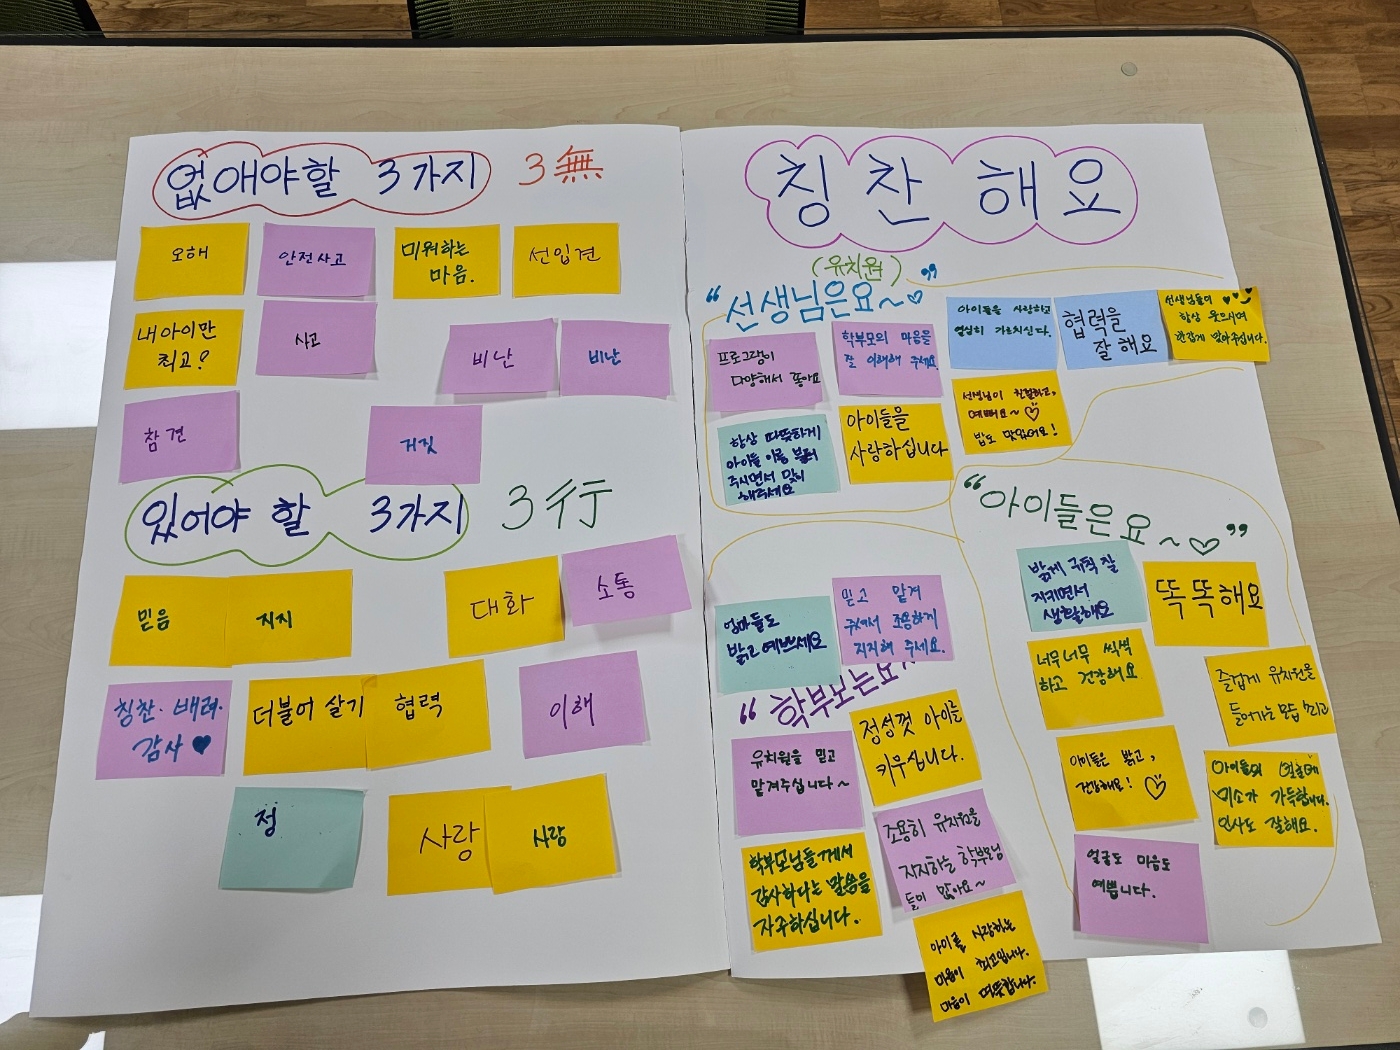 없애야할 3가지 3無
오해
안전사고
미워하는
마음.
선입견
내 아이만
최고?
사고
비난
비난
참견
거짓
있어야 할 3가지 3行
믿음
지지
대화
소통
칭찬·배려·
감사♥
더불어 살기
협력
이해
정
사랑
사랑
칭찬해요
(유치원)
"선생님은요~♡"
프로그램이
다양해서 좋아요
학부모의 마음을
잘 이해해 주세요.
아이들을 사랑하고
열심히 가르치신다.
협력을
잘 해요
선생님들이
항상 웃으시며
반갑게 맞아주십니다.
항상 따뜻하게
아이들 이름 불러
주시면서 맞이
해주세요
아이들을
사랑하십니다
선생님이 친절하고,
예뻐요~♡
밥도 맛있어요!
엄마들도
밝고 예쁘세요
믿고 맡겨
주셔서 조용하게
지지해 주세요.
"학부모는요"
유치원을 믿고
맡겨주십니다~
정성껏 아이들
키우십니다.
학부모님들께서
감사하다는 말씀을
자주하십니다.
조용히 유치원을
지지하는 학부모님
들이 많아요~
아이를 사랑하는
마음이 최고입니다.
마음이 따뜻합니다.
"아이들은요~♡"
밝게 규칙 잘
지키면서
생활해요
똑똑해요
너무너무 씩씩
하고 건강해요
즐겁게 유치원을
들어가는 모습
아이들은 밝고,
건강해요! ♡
아이들의 얼굴에
미소가 가득합니다.
인사도 잘해요.
얼굴도 마음도
예쁩니다.